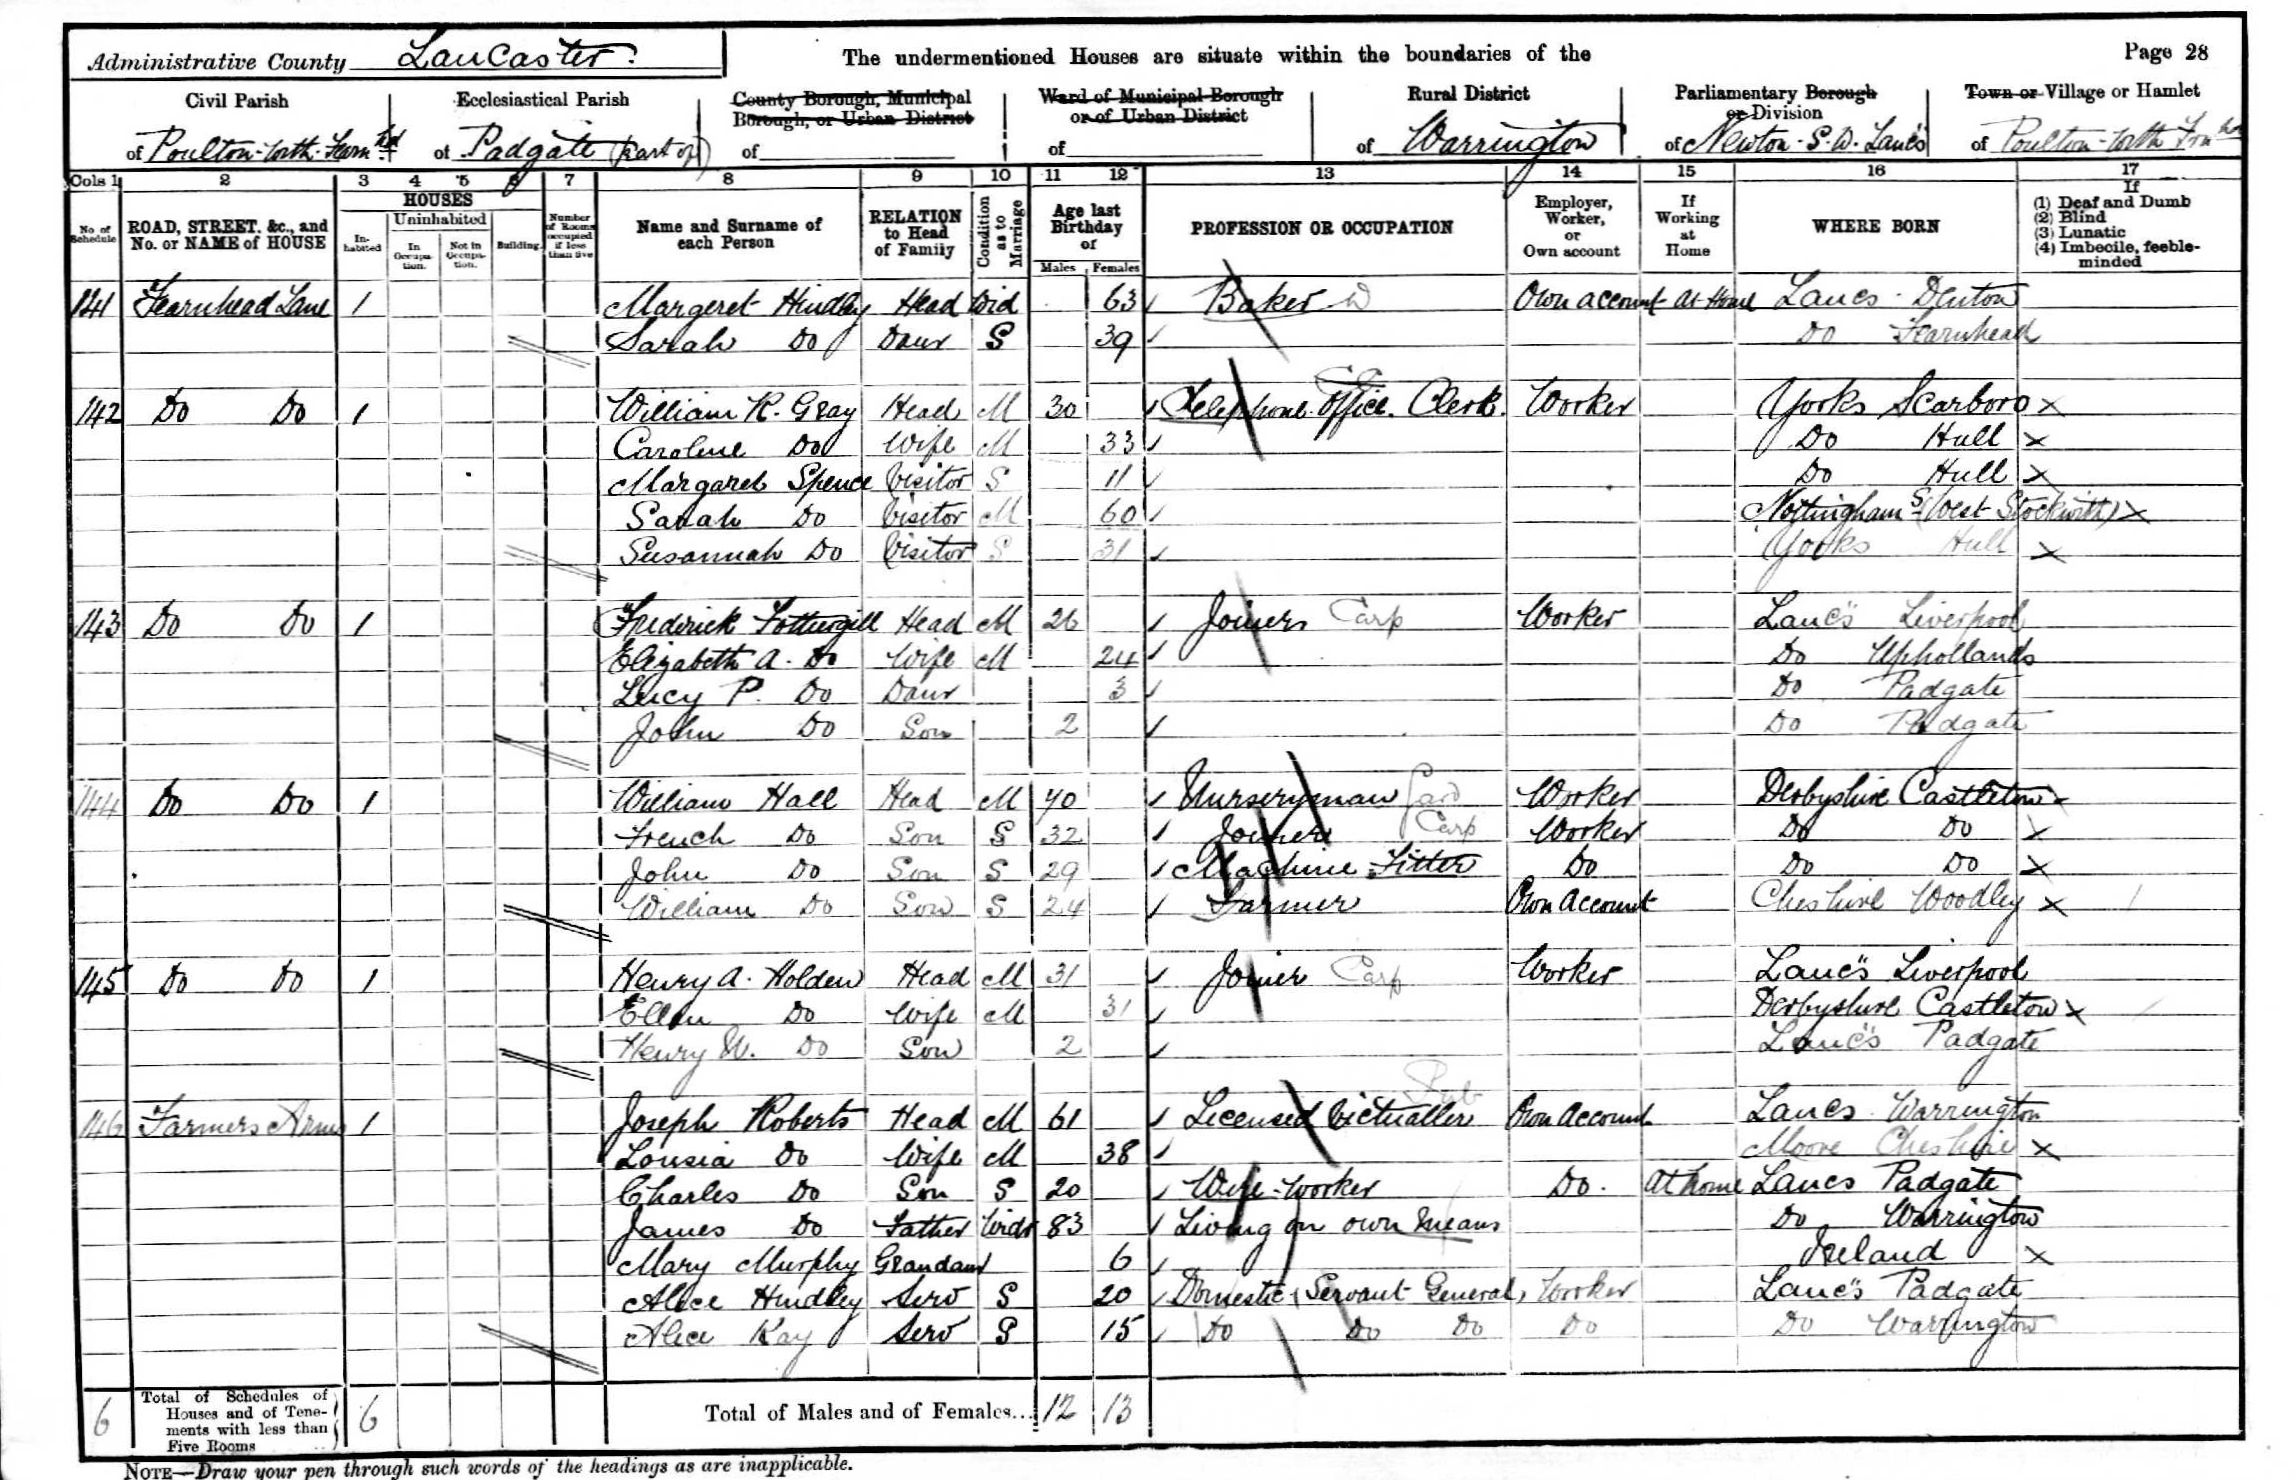 Administrative County Lancaster. The undermentioned Houses are situate within the boundaries of the Page 28
Civil Parish Ecclesiastical Parish County Borough, Municipal Borough, or Urban District Ward of Municipal Borough or of Urban District Rural District Parliamentary Borough or Division Town or Village or Hamlet
of Poulton-with-Fearnhd of Padgate (part of) of of of Warrington of Newton - S.W. Lancs of Poulton-with-Fernhd
Cols 1 2 3 4 5 6 7 8 9 10 11 12 13 14 15 16 17
No of Schedule ROAD, STREET, &c., and No. or NAME of HOUSE HOUSES Inhabited Uninhabited In Occupation. Not in Occupation. Building. Number of Rooms occupied if less than five Name and Surname of each Person RELATION to Head of Family Condition as to Marriage Age last Birthday of Males Females PROFESSION OR OCCUPATION Employer, Worker, or Own account If Working at Home WHERE BORN If (1) Deaf and Dumb (2) Blind (3) Lunatic (4) Imbecile, feeble-minded
141 Fearnhead Lane 1 Margeret Hindley Head Wid 63 Baker W Own account At Home Lancs. Denton
Sarah Do Daur S 39 Do Fearnhead
142 Do Do 1 William K. Gray Head M 30 Telephone Office Clerk. Worker Yorks Scarboro X
Caroline Do Wife M 33 Do Hull X
Margaret Spence Visitor S 11 Do Hull X
Sarah Do Visitor M 60 Nottinghams (West Stockwith) X
Susannah Do Visitor S 31 Yorks Hull X
143 Do Do 1 Frederick Fothergill Head M 26 Joiners Carp Worker Lancs Liverpool
Elizabeth A. Do Wife M 24 Do Uphollands
Lucy P. Do Daur 3 Do Padgate
John Do Son 2 Do Padgate
144 Do Do 1 William Hall Head M 70 Nurseryman Gard Worker Derbyshire Castleton X
French Do Son S 32 Joiner Carp Worker Do Do X
John Do Son S 29 Machine Fitter Do Do Do X
William Do Son S 24 Farmer Own Account Cheshire Woodley X
145 Do Do 1 Henry A. Holden Head M 31 Joiner Carp Worker Lancs Liverpool
Ellen Do Wife M 31 Derbyshire Castleton X
Henry W. Do Son 2 Lancs Padgate
146 Farmers Arms 1 Joseph Roberts Head M 61 Licensed Victualler Pub Own Account Lancs. Warrington
Lousia Do Wife M 38 Moore Cheshire X
Charles Do Son S 20 Wire-worker Do. At home Lancs Padgate
James Do Father Widr 83 Living on own means Do Warrington
Mary Murphy Grandaur 6 Ireland X
Alice Hindley Serv S 20 Domestic Servant General, Worker Lancs Padgate
Alice Kay Serv S 15 Do Do Do Do Do Warrington
6 Total of Schedules of Houses and of Tenements with less than Five Rooms 6 Total of Males and of Females... 12 13
NOTE—Draw your pen through such words of the headings as are inapplicable.